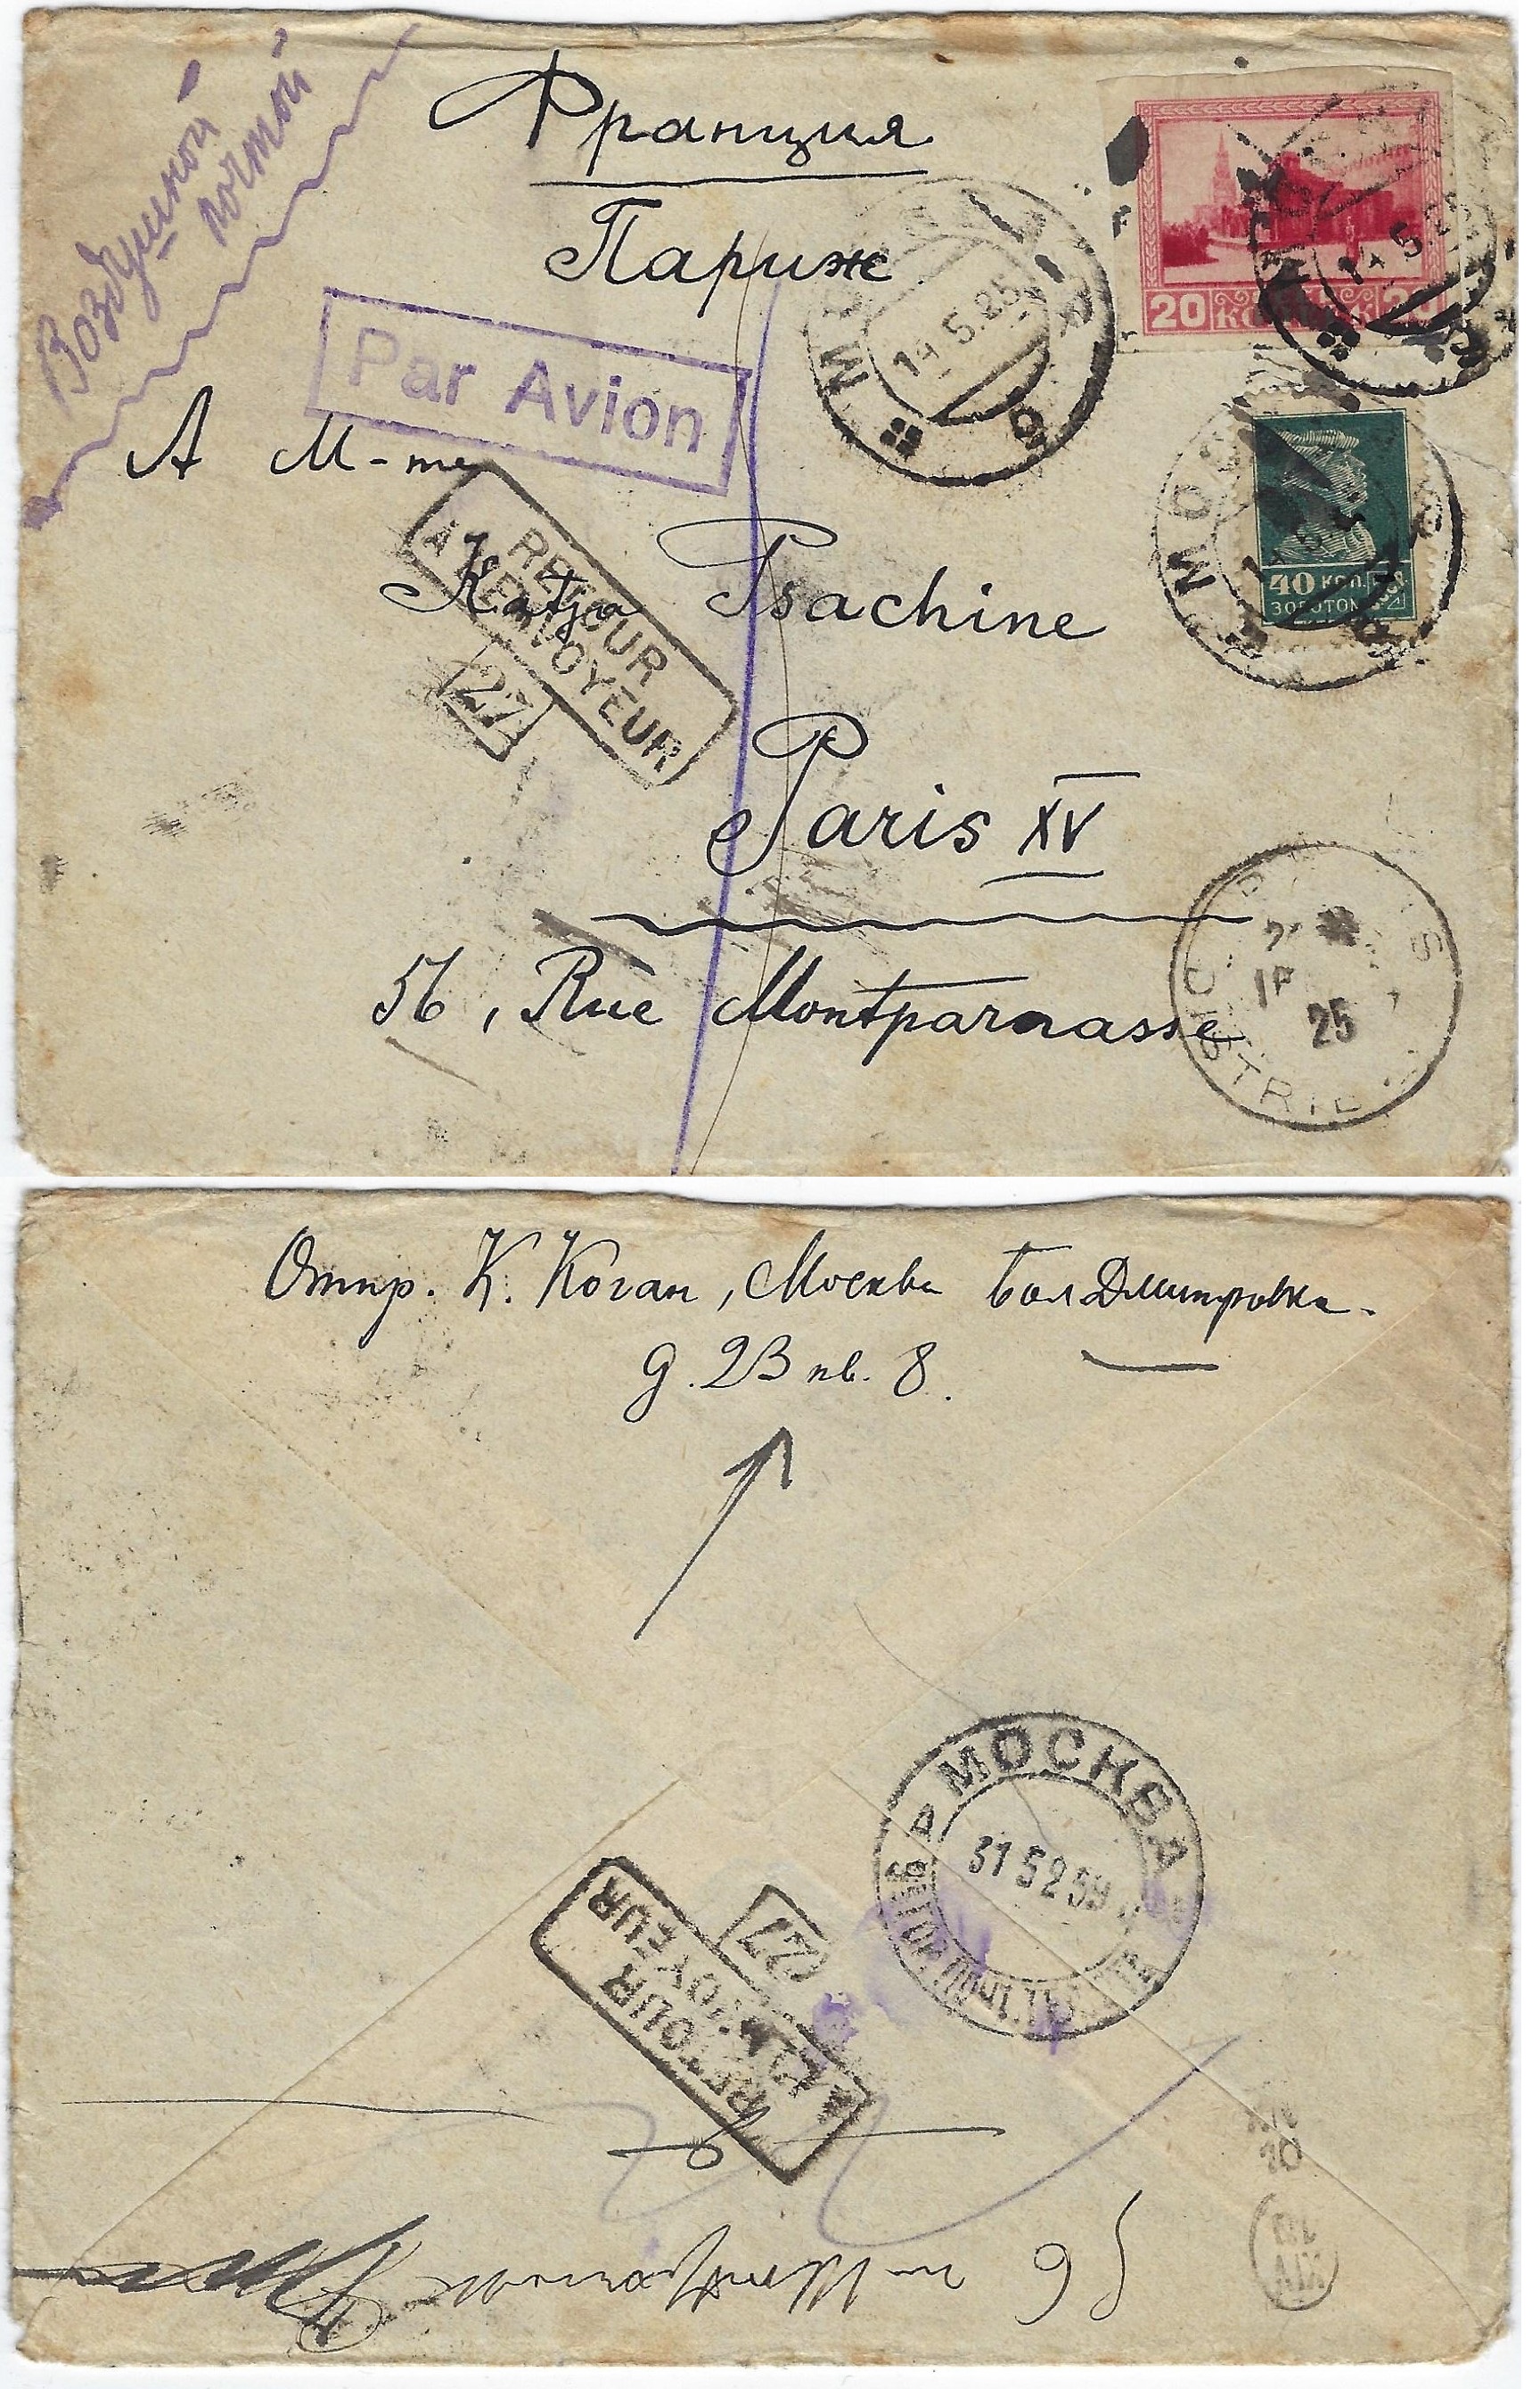 Воздушной
почтой
Франция
Париж
Par Avion
A M-me
Katja Psachine
RETOUR
A L'ENVOYEUR
27
Paris XV
56, Rue Montparnasse
МОСКВА
14.5.25
20 КОПЕЕК 20
14.5.25
МОСКВА
40 КОП.
ЗОЛОТОМ
PARIS
25
DISTRIB
Отпр. К. Коган, Москва Бол Дмитровка.
д. 23 кв. 8.
МОСКВА
31 5 25
RETOUR
A L'ENVOYEUR
27
XIV